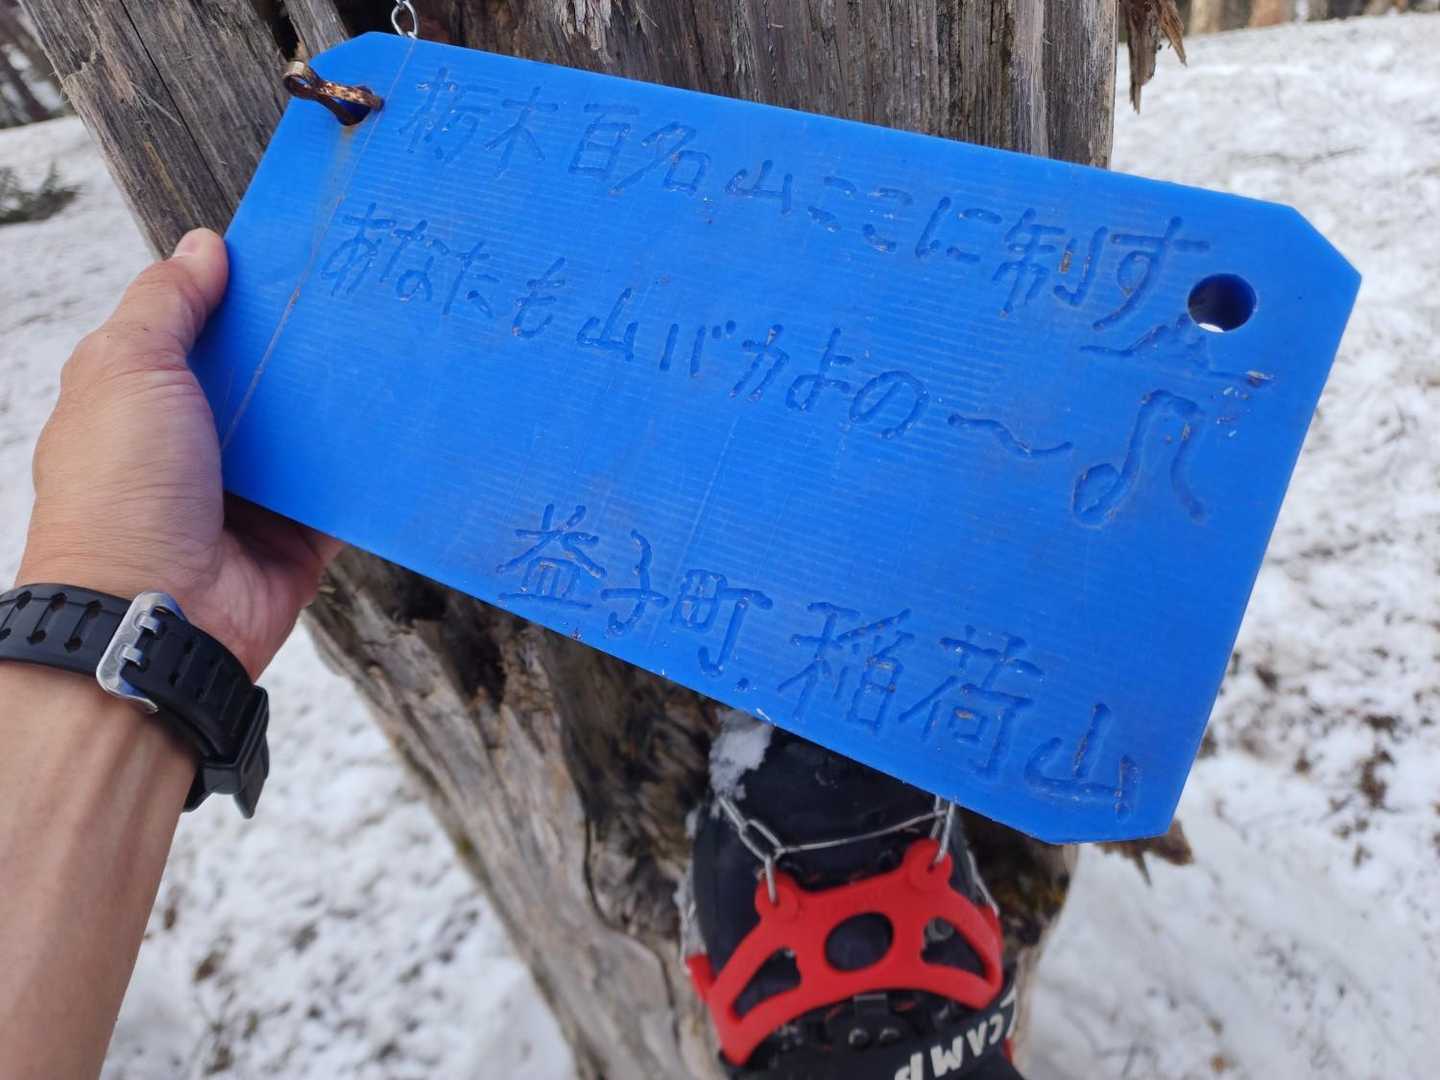 栃木百名山ここに制す
あなたも山バカよの〜♪
益子町.稲荷山
CAMP